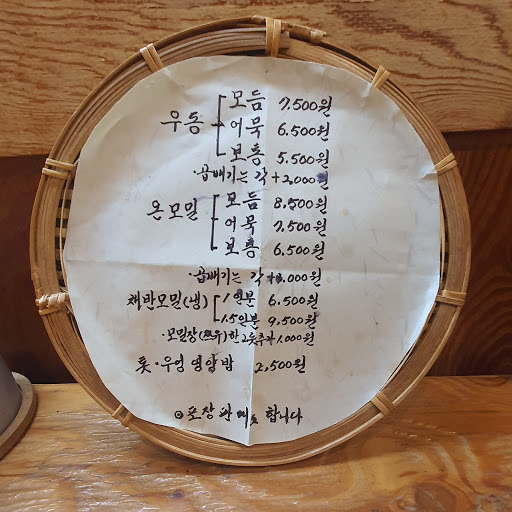 우동 모듬 7,500원
어묵 6,500원
보통 5,500원
·곱배기는 각 +2,000원
온모밀 모듬 8,500원
어묵 7,500원
보통 6,500원
·곱배기는 각 + ,000원
채반모밀(냉) 1인분 6,500원
1.5인분 9,500원
·모밀장( ) 한 추가 1,000원
톳·우엉 영양밥 2,500원
◎포장 판매도 합니다